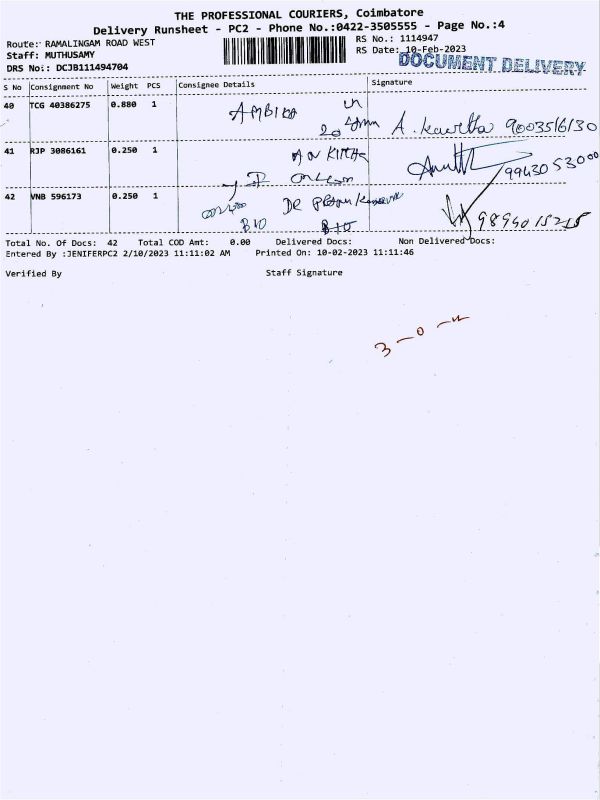 THE PROFESSIONAL COURIERS, Coimbatore
Delivery Runsheet - PC2 - Phone No.:0422-3505555 - Page No.:4
Route: RAMALINGAM ROAD WEST
RS No.: 1114947
Staff: MUTHUSAMY
RS Date: 10-Feb-2023
DRS No.: DCJB111494704
DOCUMENT DELIVERY
S No Consignment No Weight PCS Consignee Details Signature
40 TCG 40386275 0.880 1 AMBIKA
A. Kavitha 9003516130
41 RJP 3086161 0.250 1
9943053000
42 VNB 596173 0.250 1 DR
9894015215
B10
Total No. Of Docs: 42 Total COD Amt: 0.00 Delivered Docs: Non Delivered Docs:
Entered By :JENIFERPC2 2/10/2023 11:11:02 AM Printed On: 10-02-2023 11:11:46
Verified By Staff Signature